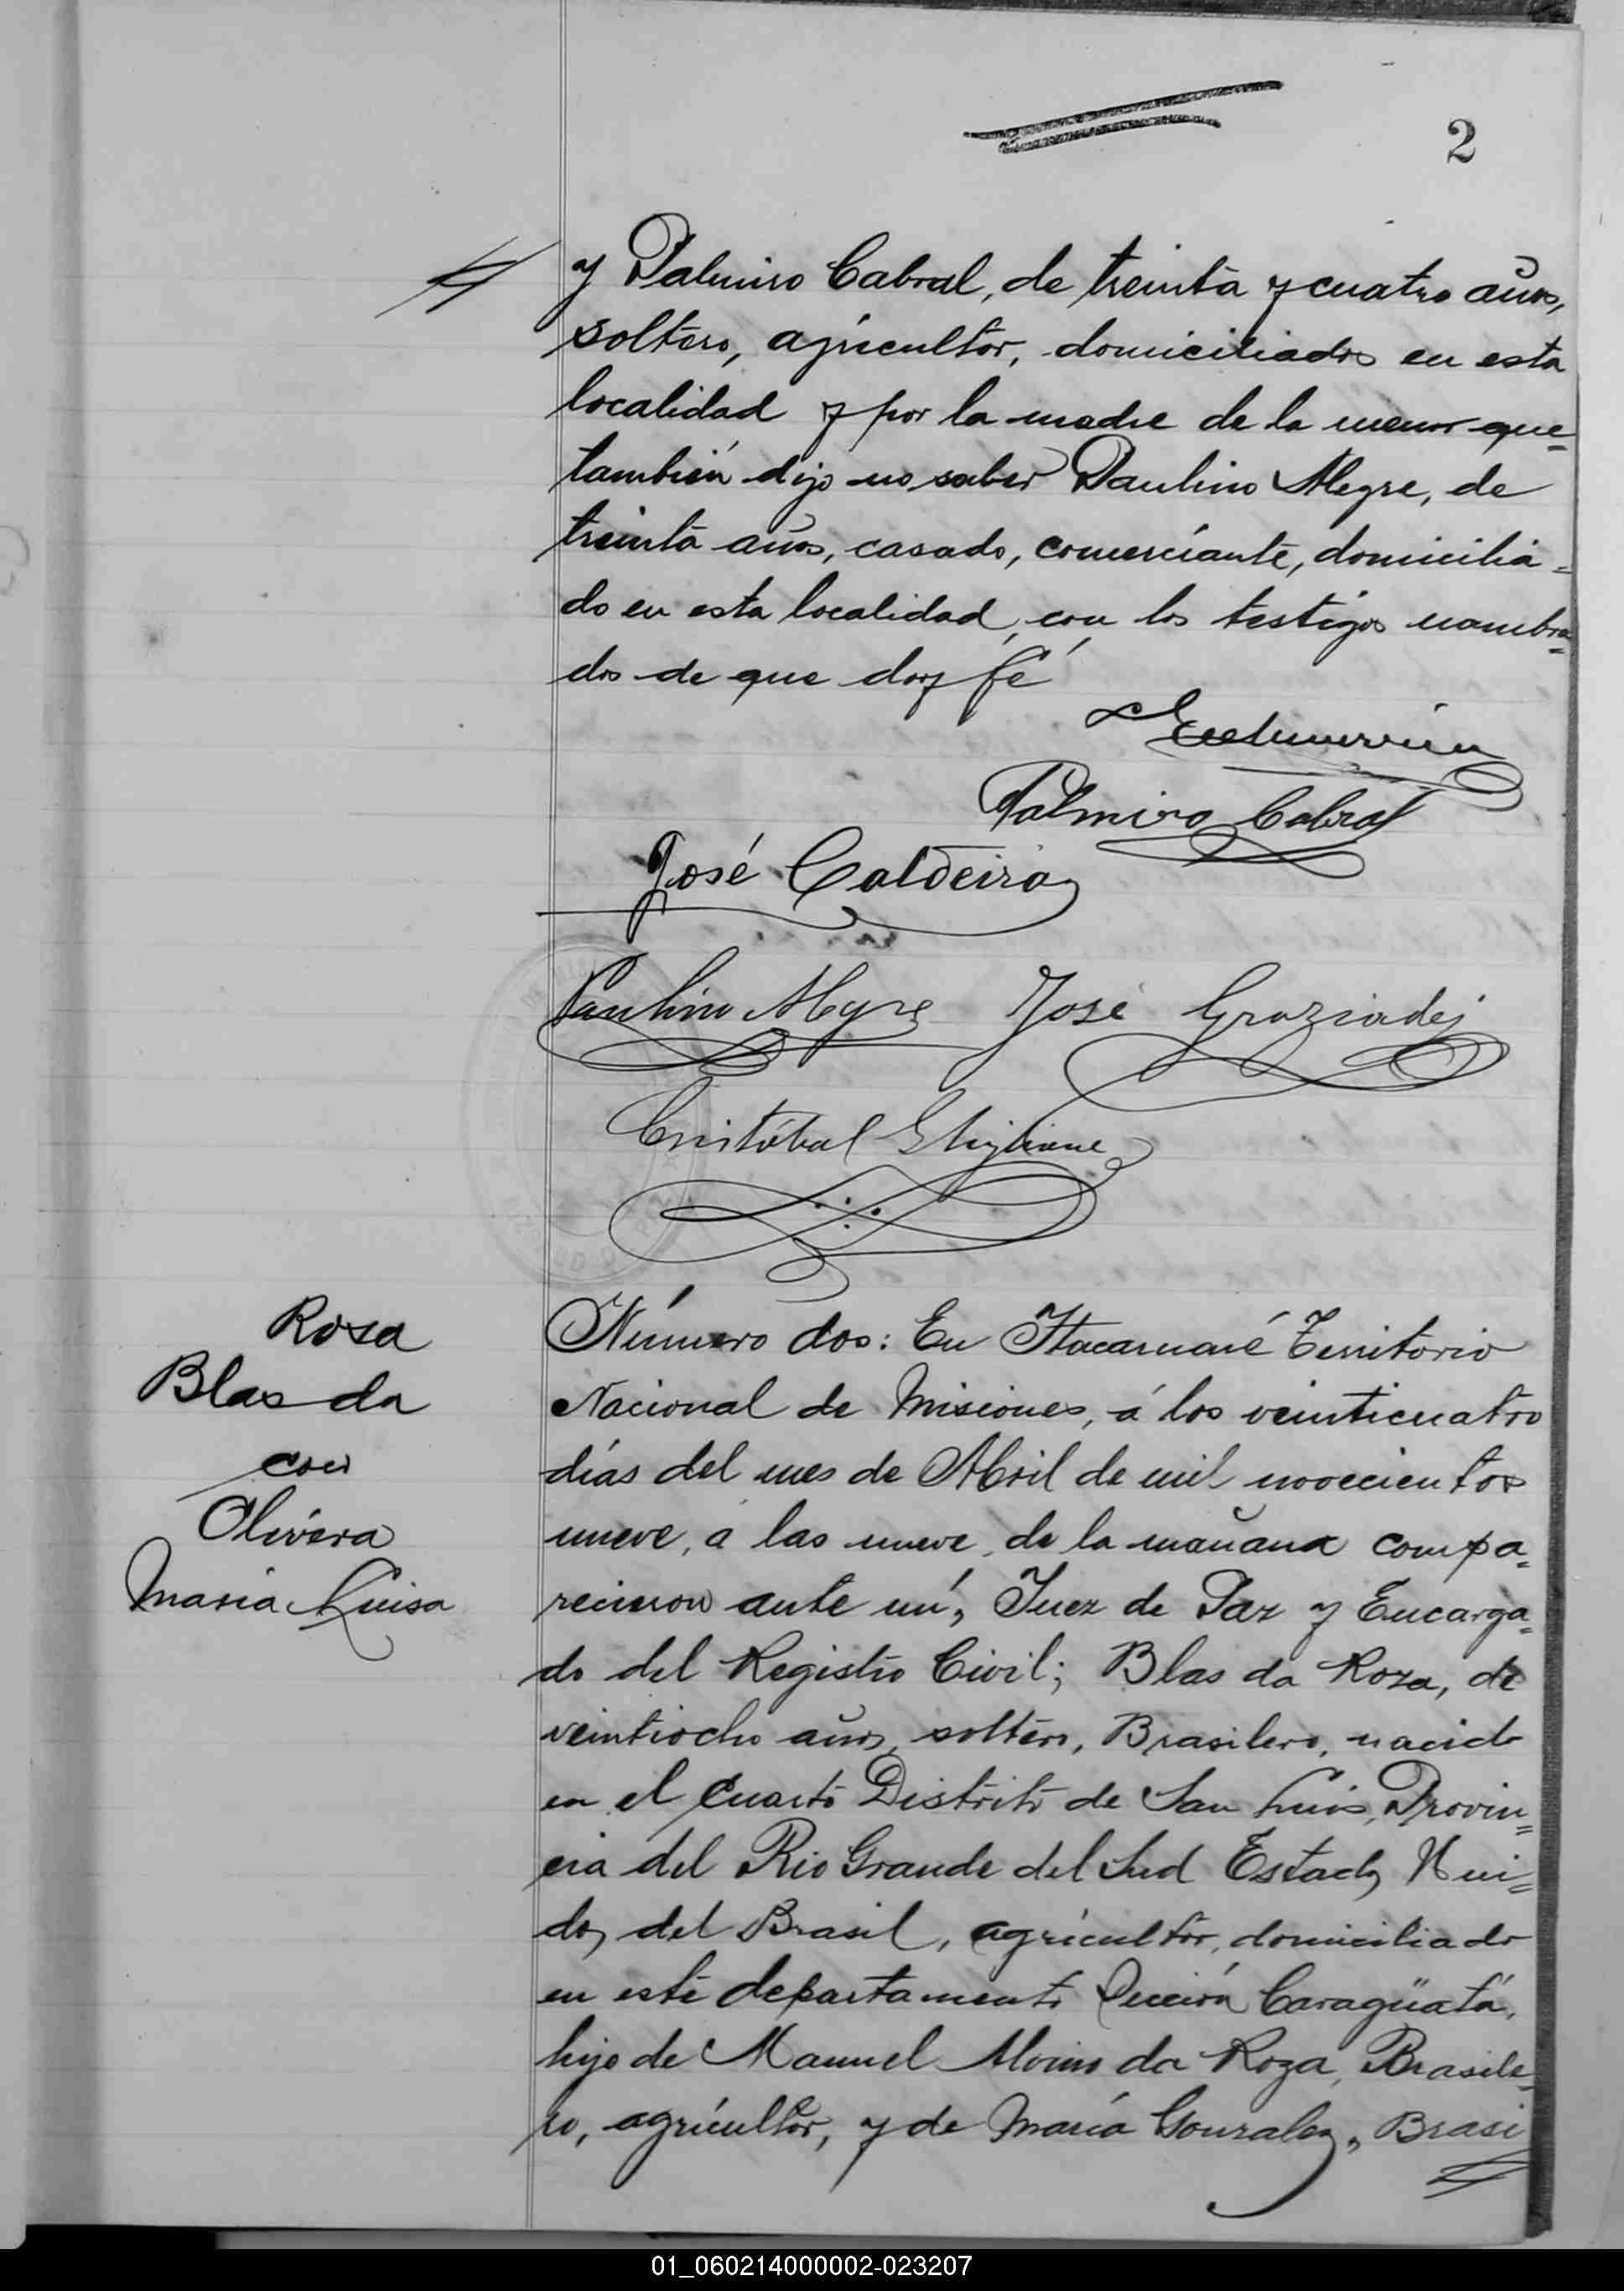 2
y Palmiro Cabral, de treinta y cuatro años,
soltero, agricultor, domiciliados en esta
localidad y por la madre de la menor que
también dijo no saber Paulino Alegre, de
treinta años, casado, comerciante, domicilia=
do en esta localidad, con los testigos nombra=
dos de que doy fé
Palmiro Cabral
José Caldeira
Paulino Alegre José Graziadei
Cristóbal
Rosa
Blas da
con
Olivera
María Luisa
Número dos: En Itacaruaré Territorio
Nacional de Misiones, á los veinticuatro
días del mes de Abril de mil novecientos
nueve, a las nueve de la mañana compa=
recieron ante mí, Juez de Paz y Encarga=
do del Registro Civil; Blas da Roza, de
veintiocho años, soltero, Brasilero, nacido
en el Cuarto Distrito de San Luis, Provin=
cia del Rio Grande del Sud Estados Uni=
dos del Brasil, agricultor, domiciliado
en este departamento Sección Caragüatá,
hijo de Manuel da Roza, Brasile=
ro, agricultor, y de María Gonzalez, Brasi
01_060214000002-023207